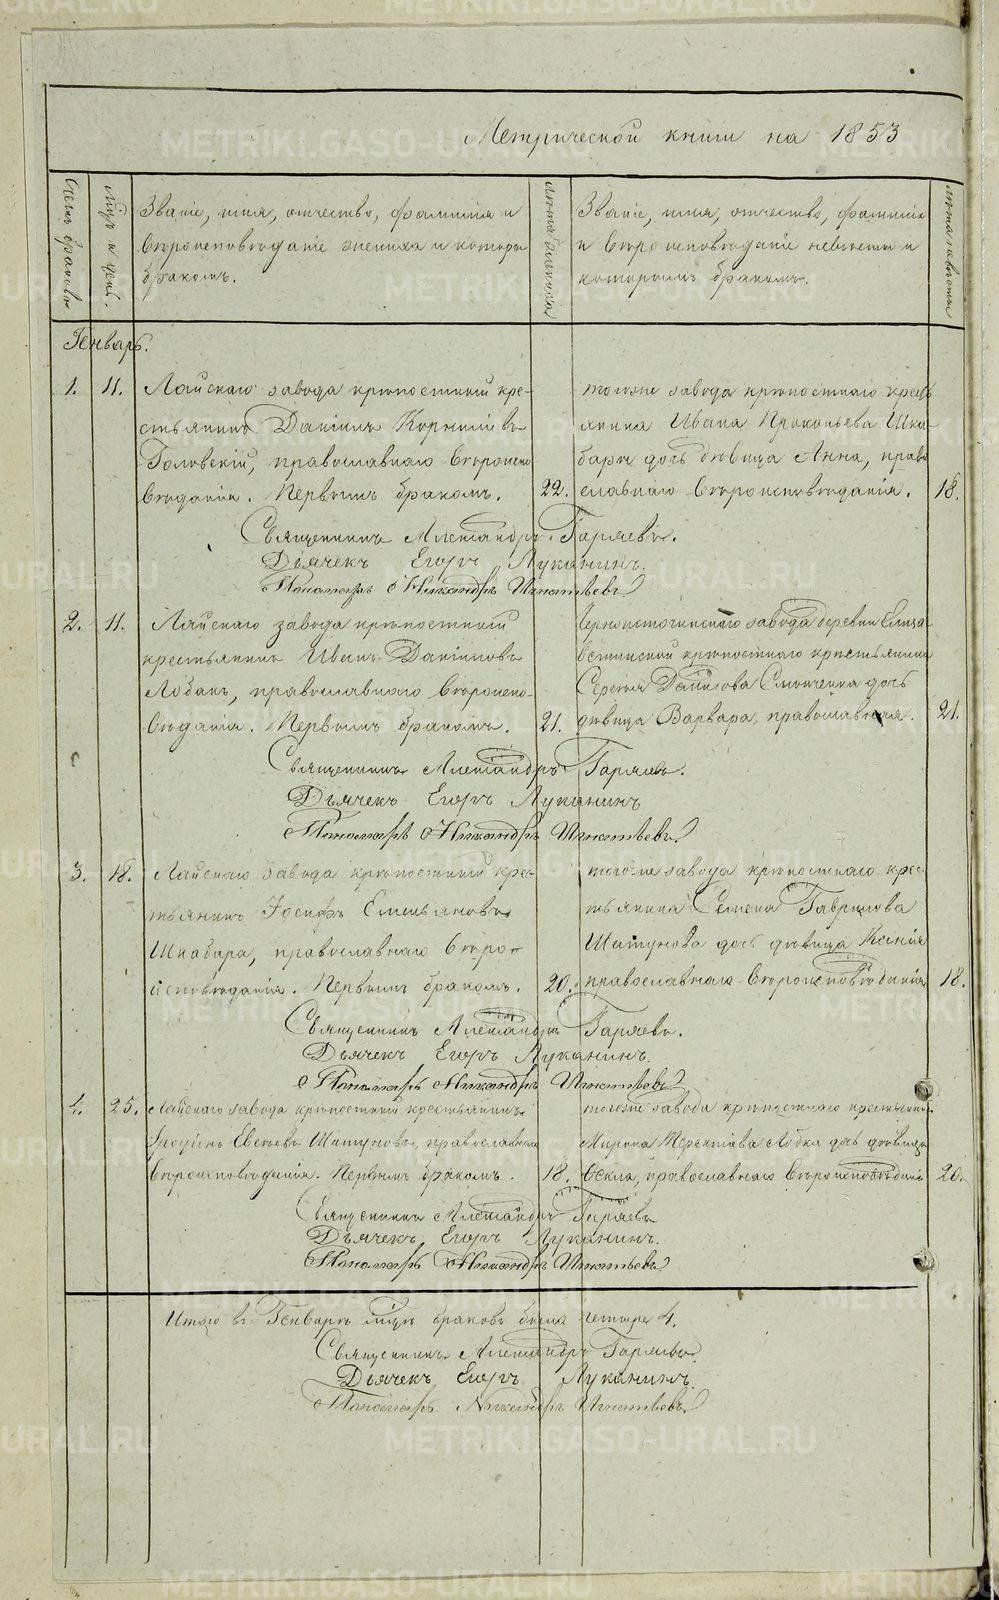 Метрической книги на 1853
Счетъ браковъ
Мѣс. и день.
Званіе, имя, отчество, фамилія и
вѣроисповѣданіе жениха и которы
бракомъ.
лѣта жениха
Званіе, имя, отчество, фамилія
и вѣроисповѣданіе невѣсты и
которымъ бракомъ.
лѣта невѣсты
Генварь.
1. 11. Лайскаго завода крѣпостный кре-
стьянинъ Даніилъ Корниліевъ
Головскій, православнаго вѣроиспо
вѣданія. Первымъ бракомъ. 22.
тогоже завода крѣпостнаго кресть
янина Ивана Прокопьева Шка-
бары дочь дѣвица Анна, право
славнаго вѣроисповѣданія. 18.
Священникъ Александръ Гаряевъ.
Дьячекъ Егоръ Луканинъ.
Пономарь Никандръ Игнатьевъ
2. 11. Лайскаго завода крѣпостный
крестьянинъ Иванъ Даніиловъ
Лобакъ, православнаго вѣроиспо-
вѣданія. Первымъ бракомъ. 21.
Черноисточинскаго завода деревни Елиза-
ветинской крѣпостнаго крестьянина
Сергѣя Данилова дочь
дѣвица Варвара, православная. 21.
Священникъ Александръ Гаряевъ.
Дьячекъ Егоръ Луканинъ
Пономарь Никандръ Игнатьевъ
3. 18. Лайскаго завода крѣпостный крес-
тьянинъ Іосифъ Емельяновъ
Шкабара, православнаго вѣро-
исповѣданія. Первымъ бракомъ. 20.
тогоже завода крѣпостнаго крес-
тьянина Семена Гаврилова
Шатунова дочь дѣвица Ксенія
православнаго вѣроисповѣданія 18.
Священникъ Александръ Гаряевъ.
Дьячекъ Егоръ Луканинъ.
Пономарь Никандръ Игнатьевъ
4. 25. Лайскаго завода крѣпостный крестьянинъ
Евсѣевъ Шатуновъ, православнаго
вѣроисповѣданія. Первымъ бракомъ. 18.
тогоже завода крѣпостнаго крестьянина
Мирона Терентіева Лобка дочь дѣвица
Ѳекла, православнаго вѣроисповѣданія 20.
Священникъ Александръ Гаряевъ
Дьячекъ Егоръ Луканинъ.
Пономарь Никандръ Игнатьевъ
Итого въ Генварѣ мѣсяцѣ браковъ было четыре 4.
Священникъ Александръ Гаряевъ.
Дьячекъ Егоръ Луканинъ.
Пономарь Никандръ Игнатьевъ